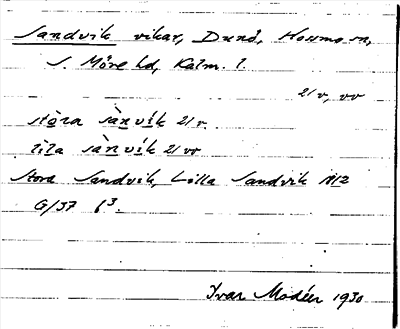 Sandvik vikar, Dunö, Hossmo sn,
S. Möre hd, Kalm. l.
21 v, vv
sto̱ra sàṉvi̱k 21 v.
li̱la sàṉvi̱k 21 vv
Stora Sandvik, Lilla Sandvik 1812
G/37 f³.
Ivar Modéer 1930